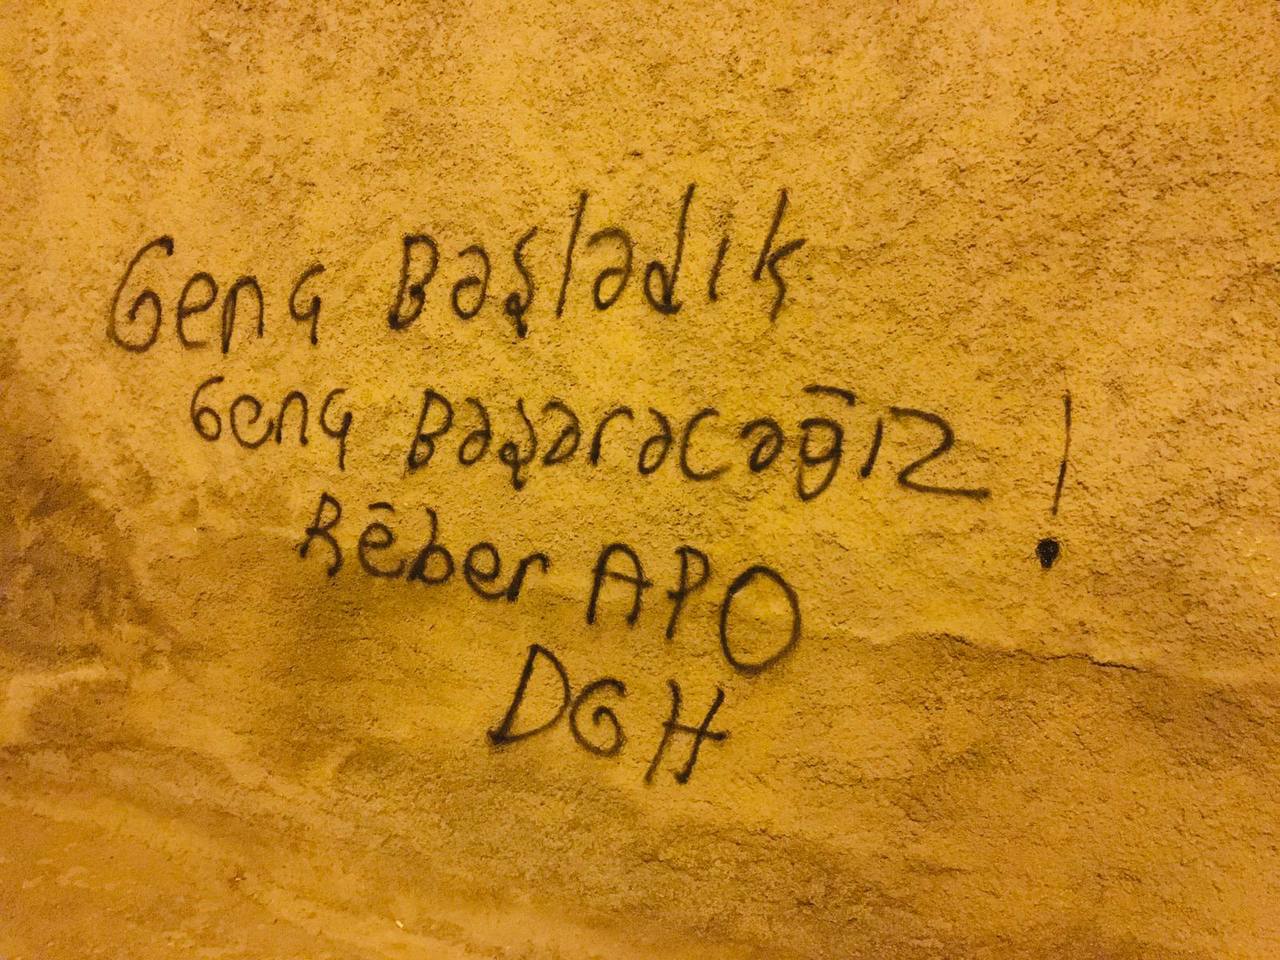 Genç Başladık
Genç Başaracağız !
Rêber APO
DGH